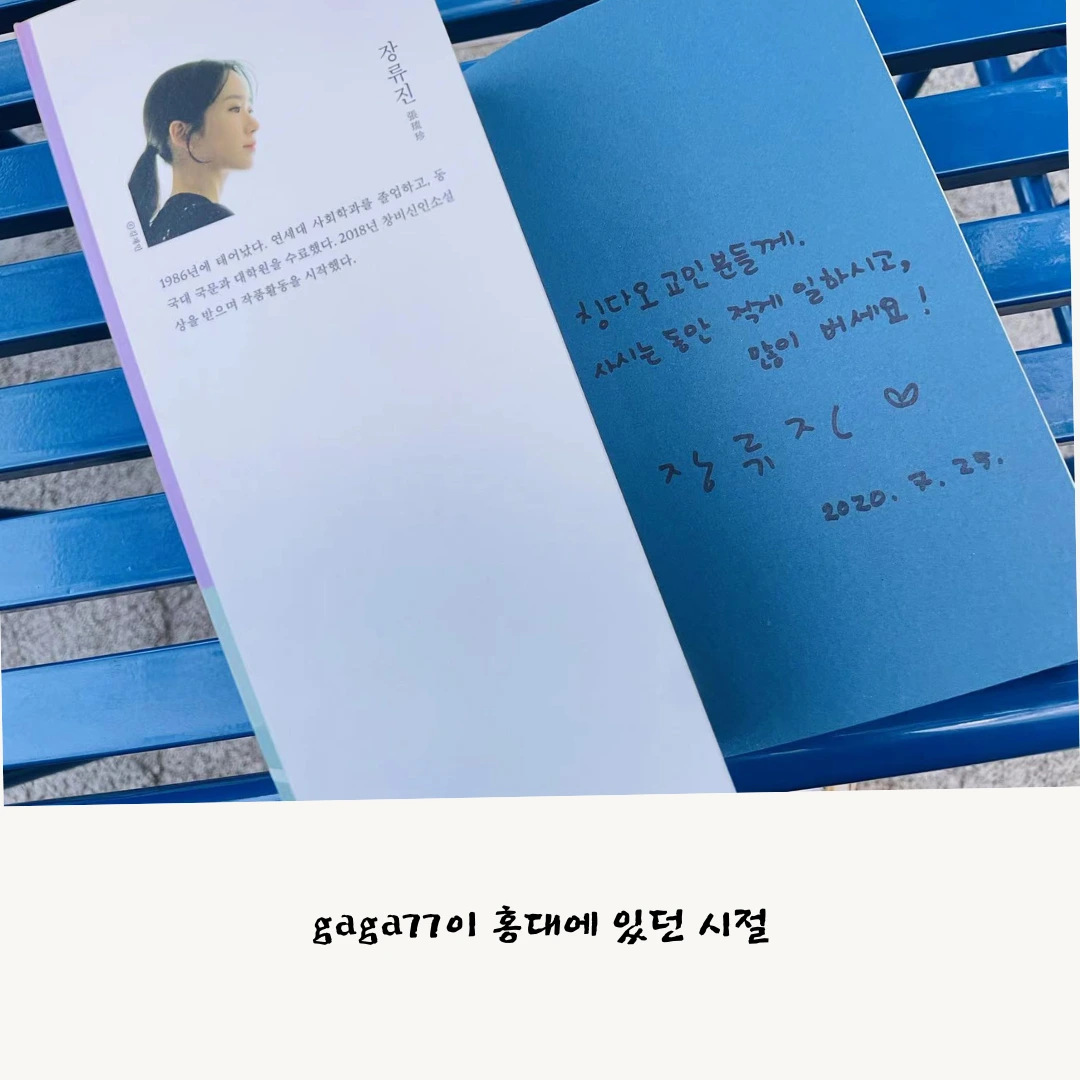 장류진 張琉珍
1986년에 태어났다. 연세대 사회학과를 졸업하고, 동
국대 국문과 대학원을 수료했다. 2018년 창비신인소설
상을 받으며 작품활동을 시작했다.
칭다오 교민분들께.
사시는 동안 적게 일하시고,
많이 버세요!
장류진 ♡
2020. 7. 29.
gaga77이 홍대에 있던 시절